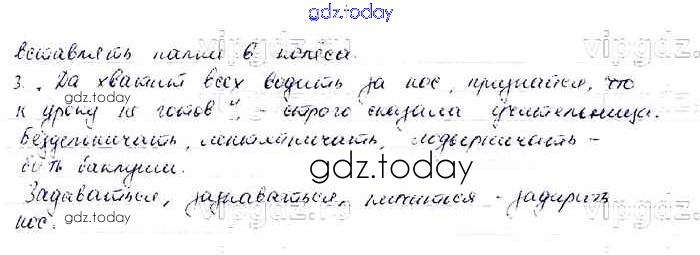 gdz.today
вставлять палки в колёса.
3. „Да хватит всех водить за нос, признайся, что
к уроку не готов“, - строго сказала учительница.
Бездельничать, лентяйничать, лодырничать -
бить баклуши.
Задаваться, зазнаваться, - задирать
нос.
gdz.today
gdz.today
gdz.today
vipgdz
vipgdz
vipgdz